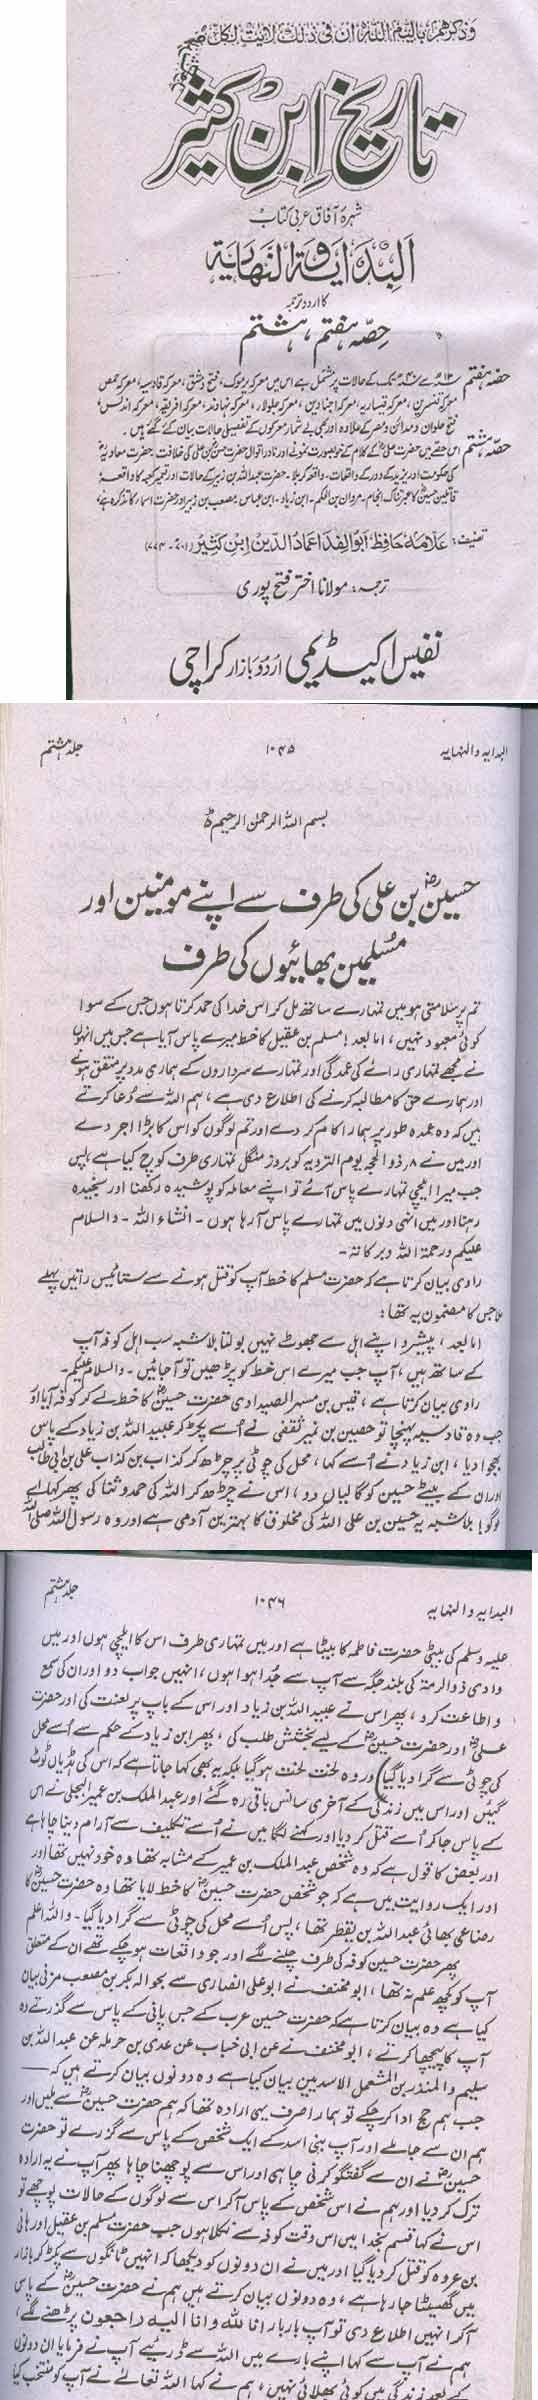 وذكرهم بايام الله ان في ذلك لايت لكل
تاریخ ابن کثیر
شہرہ آفاق عربی کتاب
البدایۃ والنہایۃ
کا اردو ترجمہ
حصہ ہفتم، ہشتم
تصنیف: علامہ حافظ ابو الفدا عماد الدین ابن کثیر (۷۰۱-۷۷۴)
ترجمہ: مولانا اختر فتح پوری
نفیس اکیڈیمی اردو بازار کراچی
البدایہ والنہایہ ۱۰۴۵ جلد ہشتم
بسم اللہ الرحمن الرحیم
حسین رض بن علی کی طرف سے اپنے مومنین اور
مسلمین بھائیوں کی طرف
تم پر سلامتی ہو میں تمہارے ساتھ مل کر اس خدا کی حمد کرتا ہوں جس کے سوا
کوئی معبود نہیں، اما بعد! مسلم بن عقیل کا خط میرے پاس آیا ہے جس میں انہوں
نے مجھے تمہاری رائے کی عمدگی اور تمہارے سرداروں کے ہماری مدد پر متفق ہونے
اور ہمارے حق کا مطالبہ کرنے کی اطلاع دی ہے، ہم اللہ سے دعا کرتے
ہیں کہ وہ عمدہ طور پر ہمارا کام کر دے اور تم لوگوں کو اس کا بڑا اجر دے
اور میں نے ۸ ذوالحجہ یوم الترویہ کو بروز منگل تمہاری طرف کوچ کیا ہے، پس
جب میرا ایلچی تمہارے پاس آئے تو اپنے معاملہ کو پوشیدہ رکھنا اور سنجیدہ
رہنا اور میں انہی دنوں میں تمہارے پاس آ رہا ہوں۔ انشاء اللہ۔ والسلام
علیکم ورحمۃ اللہ وبرکاتہ۔
راوی بیان کرتا ہے کہ حضرت مسلم کا خط آپ کو قتل ہونے سے ستائیس راتیں پہلے
ملا جس کا مضمون یہ تھا:
اما بعد، پیشرو اپنے اہل سے جھوٹ نہیں بولتا بلاشبہ سب اہل کوفہ آپ
کے ساتھ ہیں، آپ جب میرے اس خط کو پڑھیں تو آ جائیں۔ والسلام علیکم۔
راوی بیان کرتا ہے، قیس بن مسہر الصیداوی حضرت حسین رض کا خط لے کر کوفہ آیا اور
جب وہ قادسیہ پہنچا تو حصین بن نمیر ثقفی نے اُسے پکڑ کر عبید اللہ بن زیاد کے پاس
بھجوا دیا، ابن زیاد نے اُسے کہا، محل کی چوٹی پر چڑھ کر کذاب بن کذاب علی بن ابی طالب
اور ان کے بیٹے حسین کو گالیاں دو، اس نے چڑھ کر اللہ کی حمد و ثنا کی پھر کہا اے
لوگو! بلاشبہ یہ حسین بن علی اللہ کی مخلوق کا بہترین آدمی ہے اور وہ رسول اللہ صلی اللہ
البدایہ والنہایہ ۱۰۴۶ جلد ہشتم
علیہ وسلم کی بیٹی حضرت فاطمہ کا بیٹا ہے اور میں تمہاری طرف اس کا ایلچی ہوں اور میں
وادی ذوالرمہ کی بلند جگہ سے آپ سے جدا ہوا ہوں، انہیں جواب دو اور ان کی سمع
و اطاعت کرو، پھر اس نے عبید اللہ بن زیاد اور اس کے باپ پر لعنت کی اور حضرت
علی رض اور حضرت حسین رض کے لیے بخشش طلب کی، پھر ابن زیاد کے حکم سے اُسے محل
کی چوٹی سے گرا دیا گیا اور وہ لخت لخت ہو گیا بلکہ یہ بھی کہا جاتا ہے کہ اس کی ہڈیاں ٹوٹ
گئیں اور اس میں زندگی کے آخری سانس باقی رہ گئے اور عبدالملک بن عمیر البجلی نے اس
کے پاس جا کر اُسے قتل کر دیا اور کہنے لگا میں نے اُسے تکلیف سے آرام دینا چاہا ہے
اور بعض کا قول ہے کہ وہ شخص عبدالملک بن عمیر کے مشابہ تھا وہ خود نہیں تھا اور
اور ایک روایت میں ہے کہ جو شخص حضرت حسین رض کا خط لایا تھا وہ حضرت حسین رض کا
رضاعی بھائی عبداللہ بن بقطر تھا، پس اُسے محل کی چوٹی سے گرا دیا گیا۔ واللہ اعلم
پھر حضرت حسین کوفہ کی طرف چلنے لگے اور جو واقعات ہو چکے تھے ان کے متعلق
آپ کو کچھ علم نہ تھا، ابو مخنف نے ابو علی انصاری سے بحوالہ بکر بن مصعب مزنی بیان
کیا ہے وہ بیان کرتا ہے کہ حضرت حسین عرب کے جس پانی کے پاس سے گذرتے وہ
آپ کا پیچھا کرتے، ابو مخنف نے عن ابی خباب عن عدی بن حرملہ عن عبداللہ بن
سلیم والمنذر بن المشمعل الاسدیین بیان کیا ہے وہ دونوں بیان کرتے ہیں کہ——
جب ہم حج ادا کر چکے تو ہمارا صرف یہی ارادہ تھا کہ ہم حضرت حسین رض سے ملیں اور
ہم ان سے جا ملے اور آپ بنی اسد کے ایک شخص کے پاس سے گزرے تو حضرت
حسین رض نے ان سے گفتگو کرنی چاہی اور اس سے پوچھنا چاہا پھر آپ نے یہ ارادہ
ترک کر دیا اور ہم نے اس شخص کے پاس آ کر اس سے لوگوں کے حالات پوچھے تو
اس نے کہا قسم بخدا میں اس وقت کوفہ سے نکلا ہوں جب حضرت مسلم بن عقیل اور ہانی
بن عروہ کو قتل کر دیا گیا اور میں نے ان دونوں کو دیکھا کہ انہیں ٹانگوں سے پکڑ کر بازار
میں گھسیٹا جا رہا ہے، وہ دونوں بیان کرتے ہیں ہم نے حضرت حسین رض کے پاس
آ کر انہیں اطلاع دی تو آپ بار بار انا للہ وانا الیہ راجعون پڑھنے لگے،
ہم نے آپ سے کہا اپنے بارے میں اللہ سے ڈریئے آپ نے فرمایا ان دونوں
کے بعد زندگی میں کوئی بھلائی نہیں، ہم نے کہا اللہ تعالیٰ نے آپ کو منتخب کیا